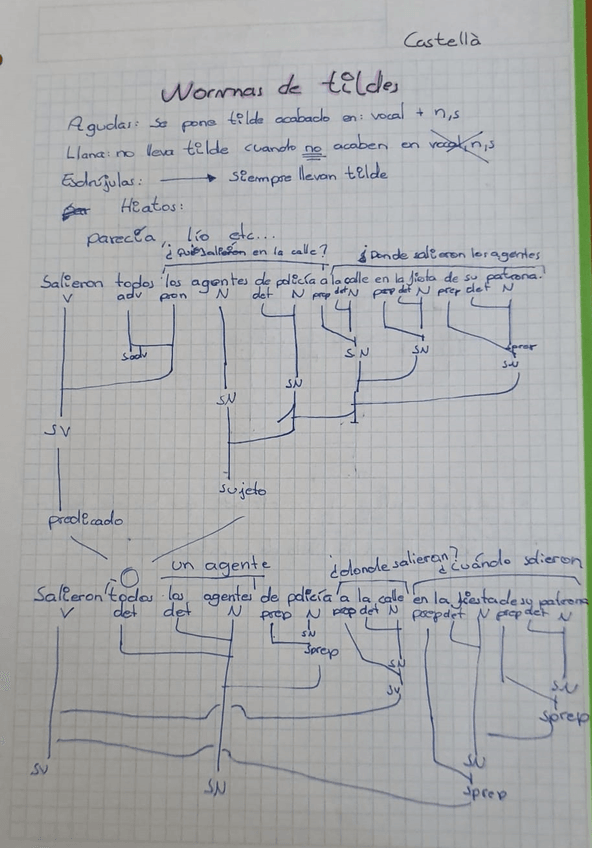 Castellà
Normas de tildes
Agudas: se pone tilde acabado en: vocal + n,s
Llana: no lleva tilde cuando no acaben en vocal, n,s
Esdrújulas: → siempre llevan tilde
Hiatos:
parecía, lío etc...
¿Quésalieron en la calle? ¿Donde salieron los agentes
Salieron todos los agentes de policía a la calle en la fiesta de su patrona?
V adv pron N det N prep det N prep det N prep det N
Sadv SN SN Sprep
SN SN SN
SV
sujeto
predicado
O un agente ¿donde salieron? ¿cuándo salieron
Salieron todos los agentes de policía a la calle en la fiesta de su patrona
V det det N prep N prep det N prep det N prep det N
SN
Sprep
SN
SV SN
Sprep
SV SN SN
Sprep